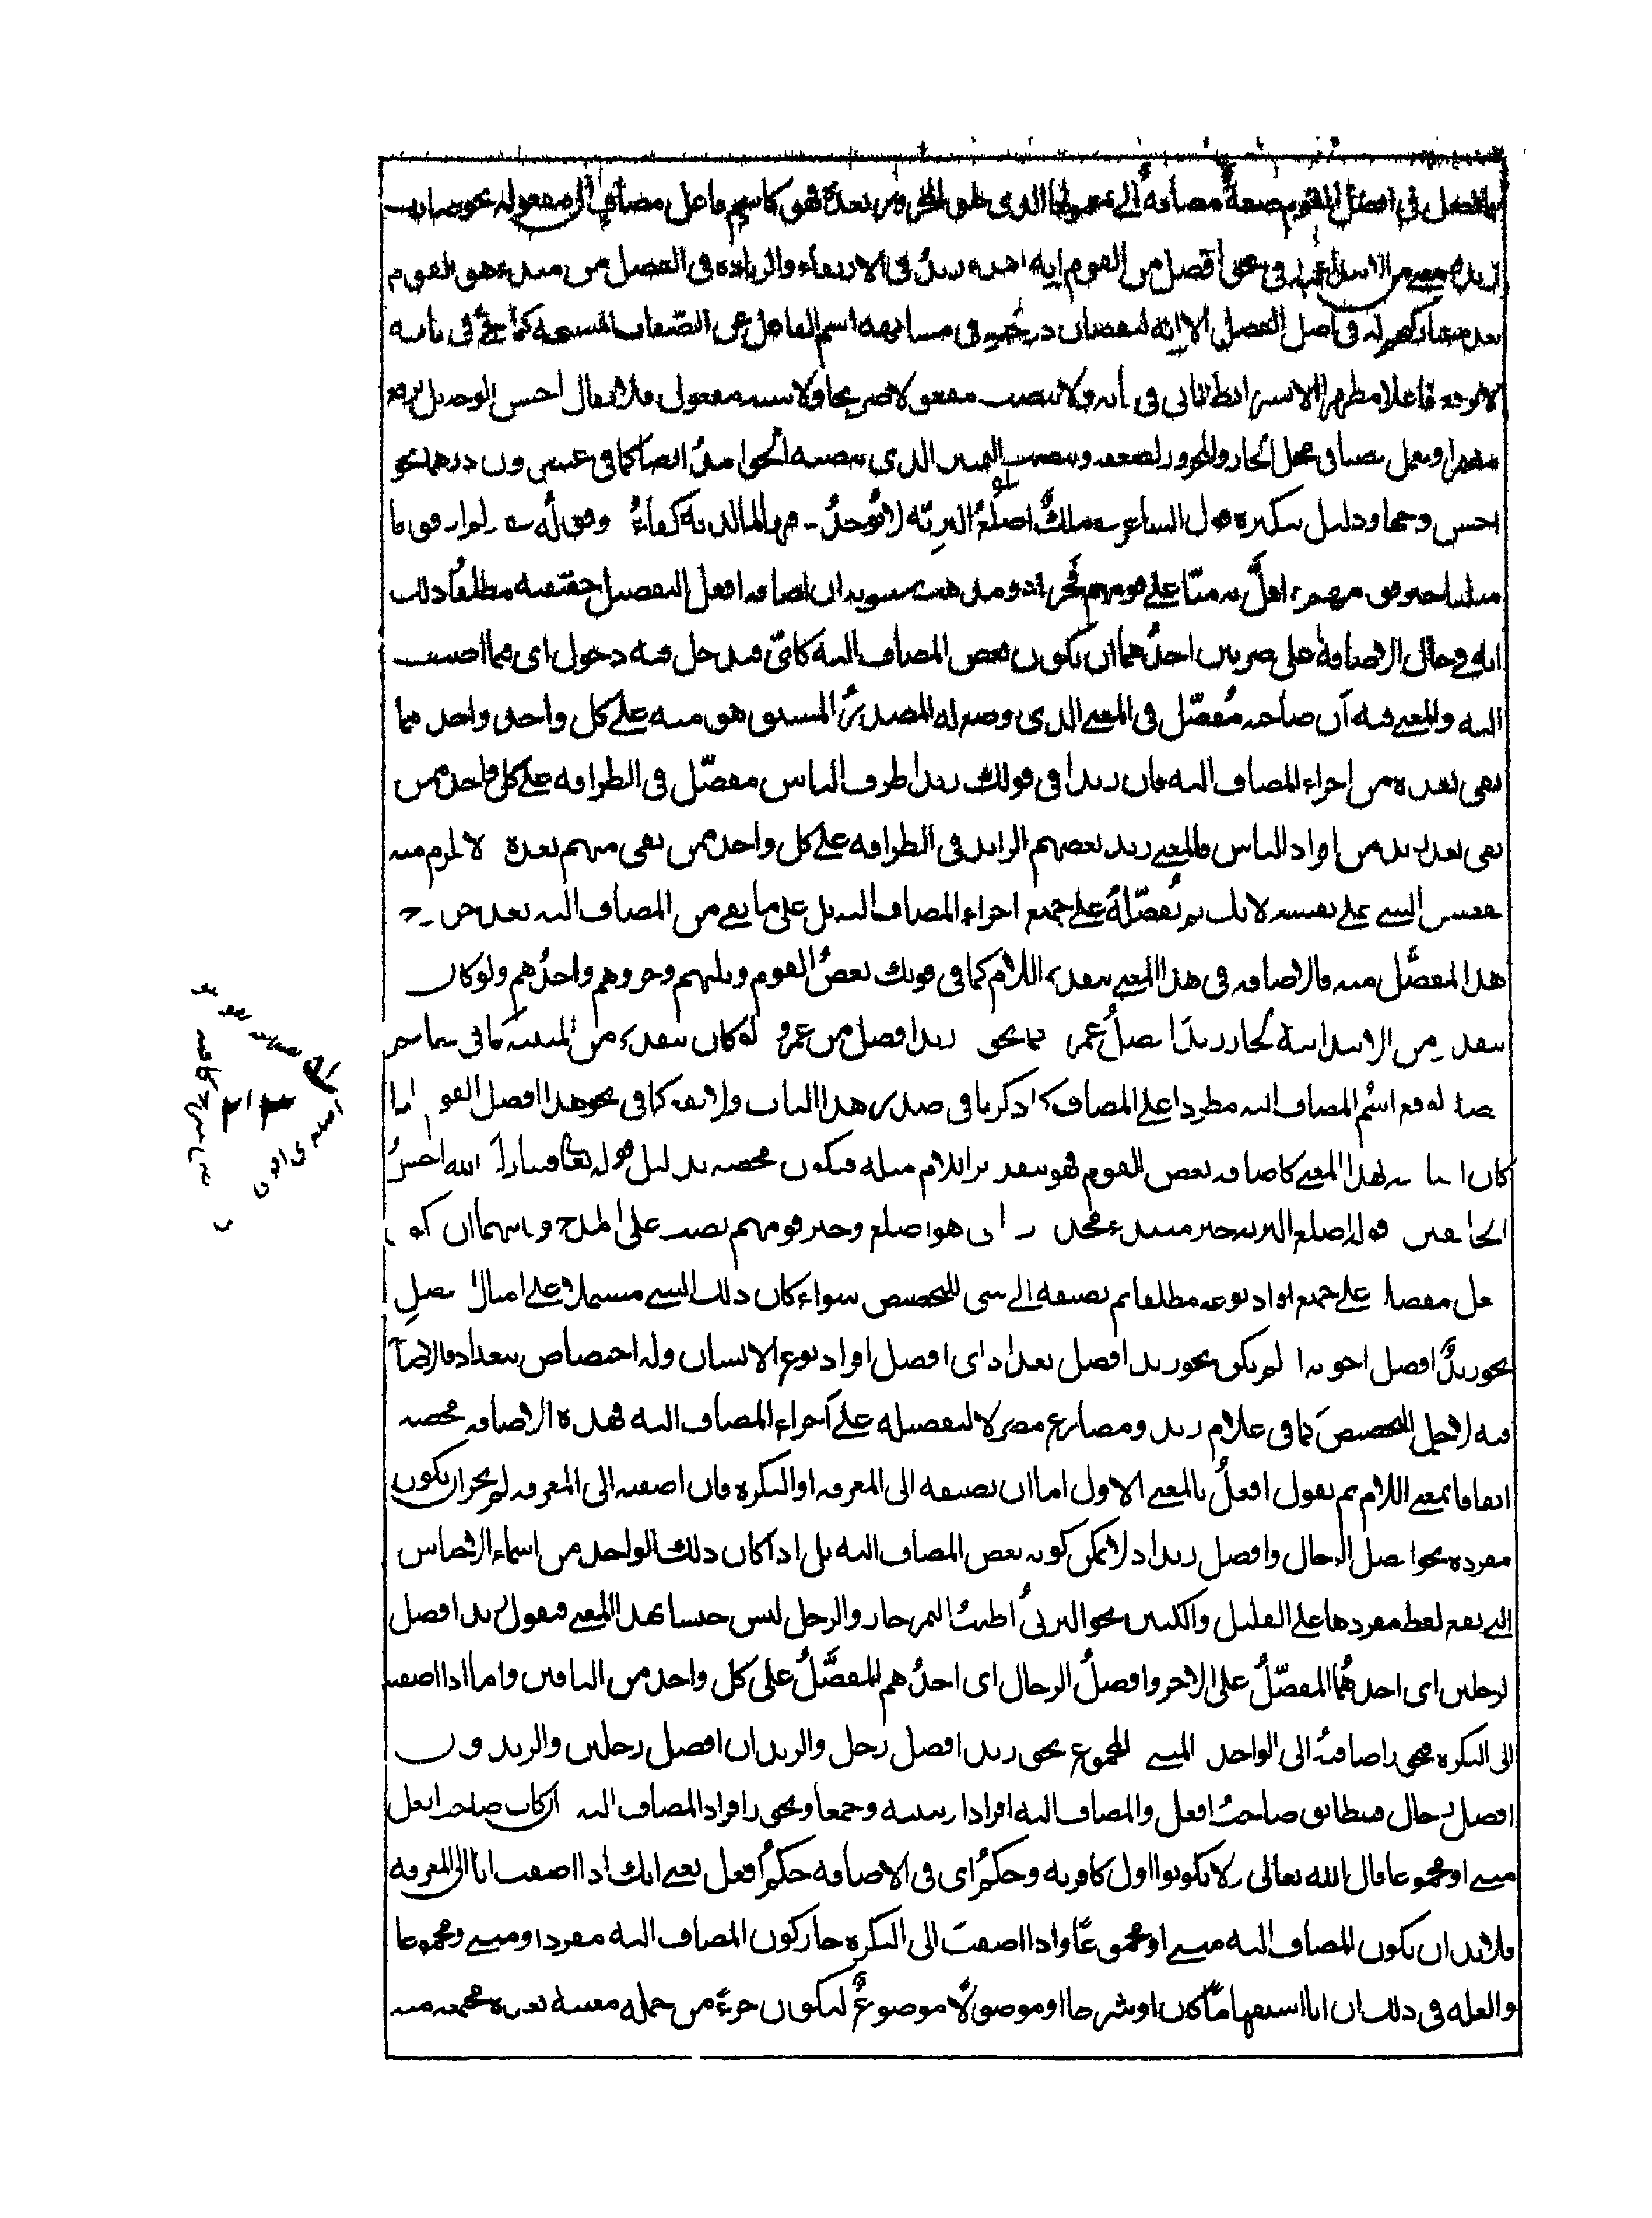 فافضل في افضل القوم صفة مضافة الى معمولها الذي هو المجرور بعده فهو كاسم فاعل مضاف الى مفعوله نحو ضارب
زيد من الابتدائية في نحو افضل من القوم ابتداء زيد في الارتفاع والزيادة في الفضل من مبدء هو القوم
بعد مشاركتهم له في اصل الفضل الا انه لنقصان درجته في مشابهة اسم الفاعل عن الصفات المشبهة كما يجئ في بابه
لا يرفع فاعلا مظهرا الا بشرائط تأتي في بابه ولا ينصب مفعولا صريحا ولا شبه مفعول فلا يقال احسن الوجه بل يرفع
مضمرا ويعمل نصبا في محل الجار والمجرور لضعفه وينصب التمييز الذي ينصبه الجوامد ايضا كما في عشرون درهما نحو
احسن وجها ودليل تنكيره قول الشاعر ملك اضلع البرية لا يوجد فيها لما لديه كفاء وقوله
على قومهم ومذهب سيبويه ان اضافة افعل التفضيل حقيقية مطلقا وذلك
انه في حال الاضافة على ضربين احدهما ان يكون بعض المضاف اليه كأي فيدخل فيه دخول اي فيما اضيف
اليه والمعنى فيه ان صاحبه مفضل في المعنى الذي وضع له المصدر المشتق هو منه على كل واحد واحد مما
بقي بعده من اجزاء المضاف اليه فان زيدا في قولك زيد اظرف الناس مفضل في الظرافة على كل واحد ممن
بقي بعد زيد من افراد الناس فالمعنى زيد بعضهم الزائد في الظرافة على كل واحد ممن بقي منهم بعده لا يلزم منه
تفضيل الشيء على نفسه لانك لم تفضله على جميع اجزاء المضاف اليه بل على ما بقي من المضاف اليه بعد خروج
هذا المفضل منه فالاضافة في هذا المعنى بتقدير اللام كما في قولك بعض القوم وثلثهم وجزوهم واحدهم ولو كان
بتقدير من الابتدائية لجاز زيد افضل عمرو كما يجئ زيد افضل من عمرو لو كان بتقدير من المبينة كما في خاتم
فضة لوقع اسم المضاف اليه مطردا على المضاف كما ذكرنا في صدر هذا الباب ولا يقع كما في نحو هذا افضل القوم
كان بهذا المعنى كاضافة بعض القوم فهو بتقدير اللام مثله فيكون محضة بدليل قوله تعالى فتبارك الله احسن
الخالقين قوله اضلع البرية خبر مبتدء محذوف اي هو اضلع وخير قومهم نصب على المدح وثانيهما ان يكون
مفضلا على جميع افراد نوعه مطلقا ثم تضيفه الى شيء للتخصيص سواء كان ذلك الشيء مشتملا على امثال
نحو زيد افضل اخوته او لم يكن نحو زيد افضل بغداد اي افضل افراد نوع الانسان وله اختصاص ببغداد فالاضافة
فيه لاجل التخصيص كما في غلام زيد ومصارع مصر لا لتفضيله على اجزاء المضاف اليه فهذه الاضافة محضة
اتفاقا بمعنى اللام ثم نقول افعل بالمعنى الاول اما ان تضيفه الى المعرفة او النكرة فان اضفته الى المعرفة لم يجز ان يكون
مفردة نحو افضل الرجل وافضل زيد اذ لا يمكن كونه بعض المضاف اليه بلى اذا كان ذلك الواحد من اسماء الاجناس
التي يقع لفظ مفردها على القليل والكثير نحو البرني اطيب التمر جاز والرجل ليس جنسا بهذا المعنى فتقول زيد افضل
الرجلين اي احدهما المفضل على الاخر وافضل الرجال اي احدهم المفضل على كل واحد من الباقين واما اذا اضفته
الى النكرة فيجوز اضافته الى الواحد والمثنى والمجموع نحو زيد افضل رجل والزيدان افضل رجلين والزيدون
افضل رجال فيطابق صاحب افعل والمضاف اليه افرادا وتثنية وجمعا ويجوز افراد المضاف اليه ان كان صاحب افعل
مثنى او مجموعا قال الله تعالى ولا تكونوا اول كافر به وحكم اي في الاضافة حكم افعل يعني انك اذا اضفت ايا الى المعرفة
فلا بد ان يكون المضاف اليه مثنى او مجموعا واذا اضفت الى النكرة جاز كون المضاف اليه مفردا ومثنى ومجموعا
والعلة في ذلك ان ايا استفهاما كان او شرطا او موصولا موضوع ليكون جزءا من جملة معينة بعده مجتمعة منه